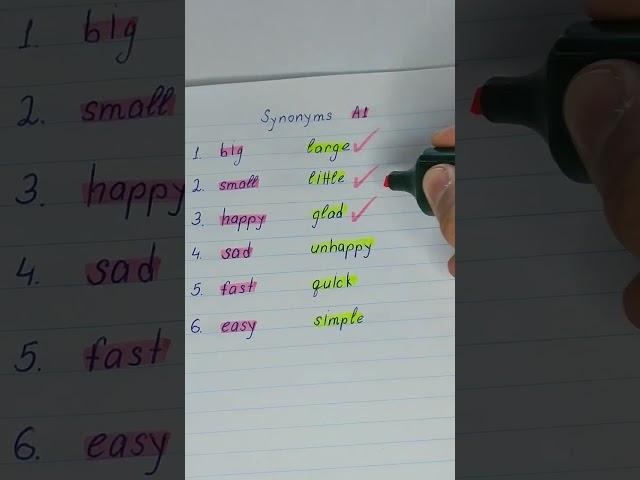 Synonyms A1
1. big large
2. small little
3. happy glad
4. sad unhappy
5. fast quick
6. easy simple
1. big
2. small
3. happy
4. sad
5. fast
6. easy